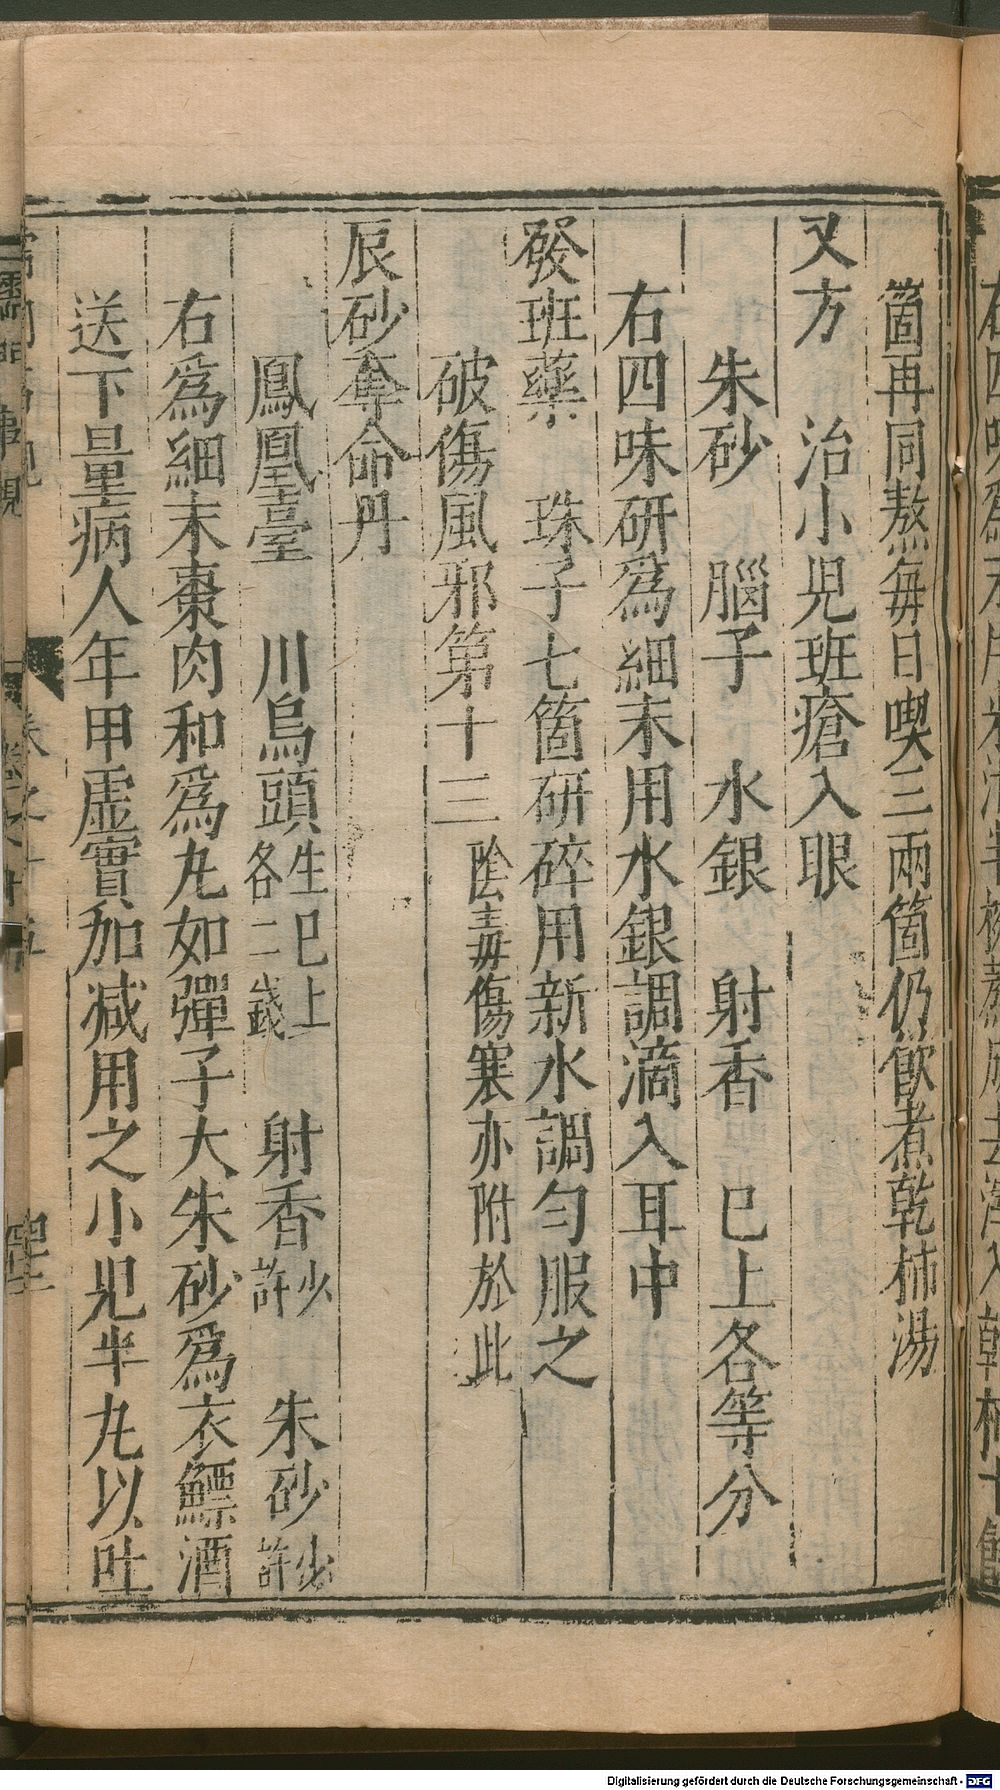 箇再同熬每日喫三兩箇仍飲煮乾柿湯
又方　治小兒班瘡入眼
朱砂　腦子　水銀　射香已上各等分
右四味研爲細末用水銀調滴入耳中
發班藥　珠子七箇研碎用新水調勻服之
破傷風邪第十三陰毒傷寒亦附於此
辰砂奪命丹
鳳凰臺　川烏頭生已上各二錢　射香少許　朱砂少許
右爲細末棗肉和爲丸如彈子大朱砂爲衣鰾酒
送下量病人年甲虛實加减用之小兒半丸以吐
Digitalisierung gefördert durch die Deutsche Forschungsgemeinschaft - DFG